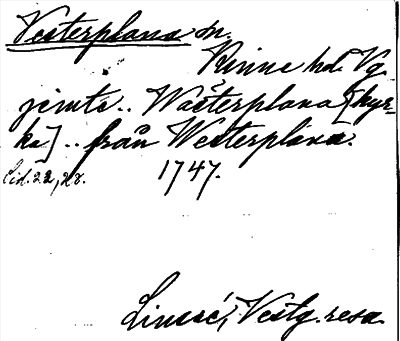 Vesterplana sn.
Kinne hd. Vg.
jemte.. Wästerplana [kyr-
ka] .. från Westerplana.
Sid. 22, 28. 1747.
Linné, Vestg. resa.